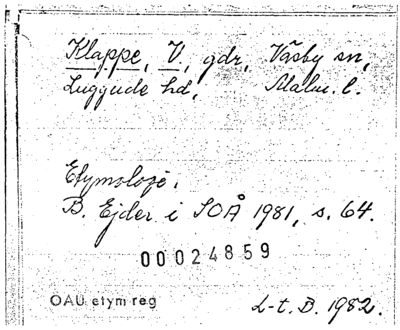 Klappe, V., gdr, Väsby sn,
Luggude hd, Malm. l.
Etymologi.
B. Ejder i SOÅ 1981, s. 64.
00024859
OAU etym reg
L-t. B. 1982.